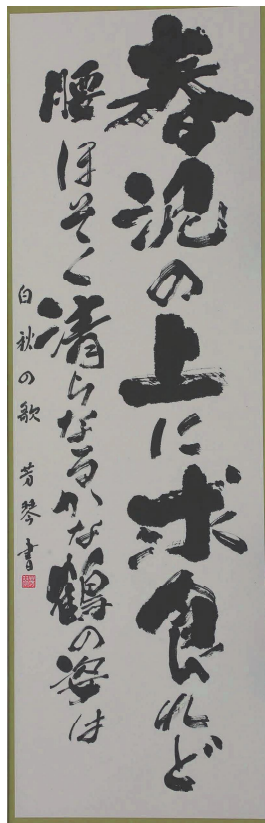 春泥の上に求食れど
腰ほそく清らなるかな鶴の姿は
白秋の歌 芳琴書